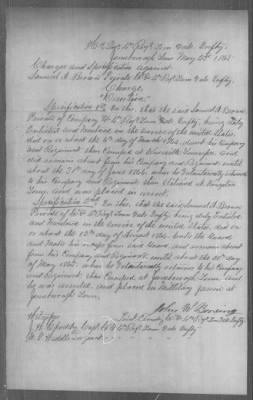 Hd Qrs 4th Regt Tenn Vols Infty
Jonesborough Tenn May 23d 1865
Charges and Specifications against
Samuel A. Brown Private Co H 4th Regt Tenn Vols Infty.
Charge,
"Desertion"
Specification 1st In this, that the said Samuel A. Brown
Private of Company H 4th Regt Tenn Vols Infty, being duly
Enlisted and mustered in the service of the United States,
did on or about the 6th day of March 1864, desert his Company
and Regiment, then Camped at Nashville Tennessee and
did remain absent from his Company and Regiment until
about the 21st day of June 1864, when he voluntarily returned
to his Company and Regiment, then Stationed at Kingston
Tenn, and was placed in arrest.
Specification 2nd In this, that the said Samuel A. Brown
Private of Co H 4th Regt Tenn Vols Infty, being duly Enlisted
and Mustered in the service of the United States, did on
or about the day of August 1864, the Guard
and Make his escape from said Guard, and remain absent
from his Company and Regiment, until about the 20th day
of May 1865, when he voluntarily returned to his Company
and Regiment, then Camped at Jonesborough Tenn, and
he was arrested, and placed in Military prison at
Jonesborough Tenn.
John W. Boring
Lieut Comdg Co H 4th Regt Tenn Vols Infty
Witnesses
Capt Co H 4th Regt Tenn Vols Infty